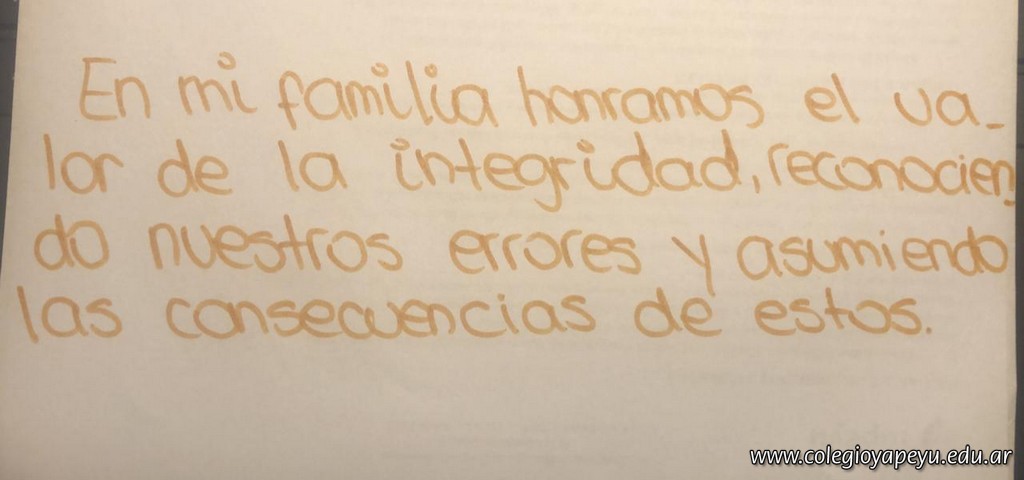 En mi familia honramos el va-
lor de la integridad, reconocien-
do nuestros errores y asumiendo
las consecuencias de estos.
www.colegioyapeyu.edu.ar